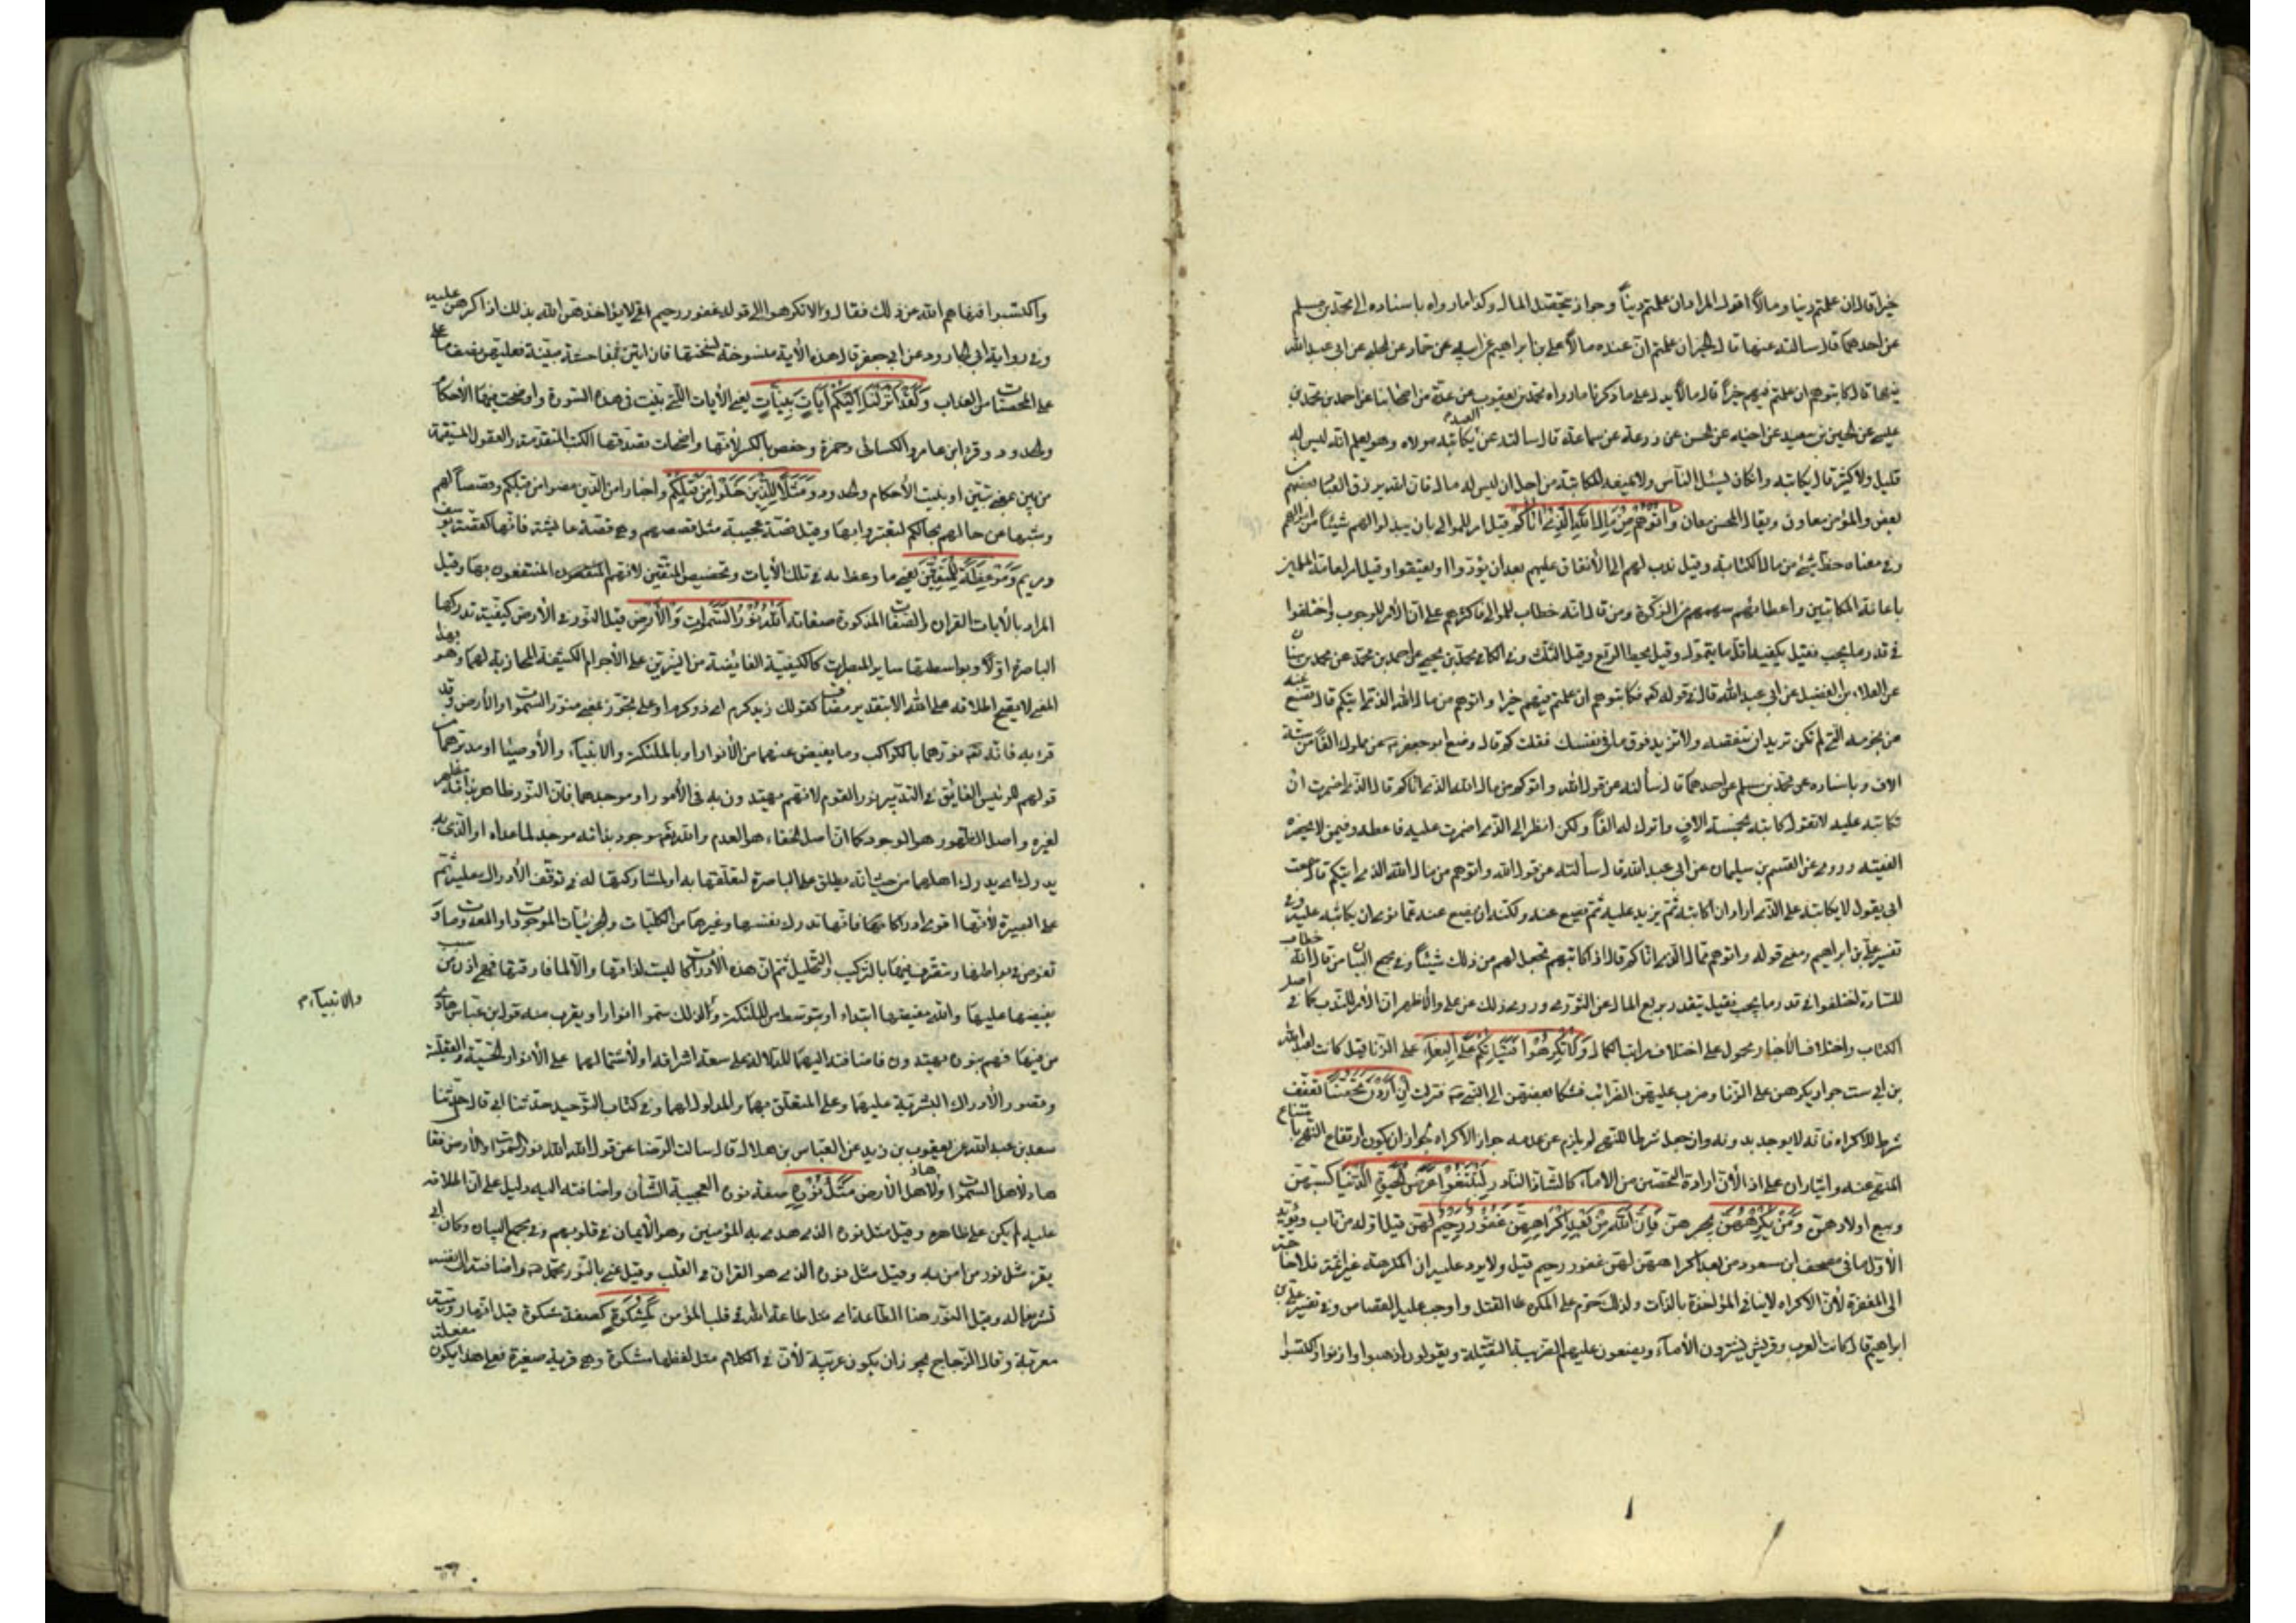 خيرا قال ان علمتم دينا ومالا اقول المراد ان علمتم دينا وجواز تحقيل المال وكذا ما رواه باسناده الى محمد بن مسلم
عن احدهما قال سالته عنها قال الخير ان علمتم ان عنده مالا على بن ابراهيم عن ابيه عن حماد عن الحلبي عن ابى عبد الله
فيها قال كاتبوهم ان علمتم فيهم خيرا قال مالا يدل على ما ذكرنا ما رواه محمد بن يعقوب عن عدة من اصحابنا عن احمد بن محمد بن
عيسى عن الحسين بن سعيد عن اخيه عن الحسن عن زرعة عن سماعة قال سالته عن العبد يكاتبه مولاه وهو يعلم انه ليس له
قليل ولا كثير قال يكاتبه وان كان يسئل الناس ولا يمنعه المكاتبة من اجل ان ليس له مال فان الله يرزق العباد بعضهم
بعض والمؤمن معاون ويقال المحسن معان وَآتُوهُمْ مِنْ مَالِ اللهِ الَّذِي آتَاكُمْ قيل امر للموالى بان يبذلوا لهم شيئا من اموالهم
وفى معناه حط شئ من مال الكتابة وقيل ندب لهم الى الانفاق عليهم بعد ان يؤدوا ويعتقوا وقيل امر لعامة المسلمين
باعانة المكاتبين واعطائهم سهمهم من الزكوة ومن قال انه خطاب للموالى فاكثرهم على ان الامر للوجوب واختلفوا
فى قدر ما يجب فقيل يكفيه اقل ما يتمول وقيل يحط الربع وقيل الثلث وفى الكافى محمد بن يحيى عن احمد بن محمد عن محمد بن سنان
عن العلاء بن الفضيل عن ابى عبد الله قال فى قوله فكاتبوهم ان علمتم فيهم خيرا واتوهم من مال الله الذى اتيكم قال تضع عنه
من نجومه التى لم تكن تريد ان تنقصه ولا تزيد فوق ما فى نفسك فقلت كم قال وضع ابو جعفر عن مملوك الفا من ستة
الاف وباسناده عن محمد بن مسلم عن احدهما قال سألته عن قول الله واتوهم من مال الله الذى اتاكم قال الذى اضمرت ان
تكاتبه عليه لا تقول اكاتبه بخمسة الاف واترك له الفا ولكن انظر الى الذى اضمرت عليه فاعطه وفيمن لا يحضره
الفقيه وروى عن القسم بن سليمان عن ابى عبد الله قال سألته عن قول الله واتوهم من مال الله الذى اتيكم قال سمعت
ابى يقول لا يكاتبه على الذى اراد ان اكاتبه ثم يزيد عليه ثم يضع عنه ولكنه ان يضع عنه مما نوى ان يكاتبه عليه وفى
تفسير على بن ابراهيم ومعنى قوله واتوهم من مال الله الذى اتاكم قال اذا كاتبتهم تجعل لهم من ذلك شيئا وفى مجمع البيان من قال انه خطاب
للسادة اختلفوا فى قدر ما يجب فقيل يتقدر بربع المال عن الثورى وروى ذلك عن على والاظهر ان الامر للندب كما فى اصل
الكتاب واختلاف الاخبار محمول على اختلاف مراتب الكمال وَلَا تُكْرِهُوا فَتَيَاتِكُمْ عَلَى الْبِغَاءِ على الزنا قيل كانت لعبد الله
بن ابى ست جوار يكرههن على الزنا وضرب عليهن الضرائب فشكا بعضهن الى النبى فنزلت إِنْ أَرَدْنَ تَحَصُّنًا تعففا
شرط للاكراه فانه لا يوجد بدونه وان جعل شرطا للنهى لم يلزم من عدمه جواز الاكراه لجواز ان يكون ارتفاع النهى بامتناع
المنهى عنه وايثار ان على اذا لان ارادة التحصن من الاماء كالشاذ النادر لِتَبْتَغُوا عَرَضَ الْحَيٰوةِ الدُّنْيَا كسبهن
وبيع اولادهن وَمَنْ يُكْرِهْهُنَّ يجبرهن فَإِنَّ اللهَ مِنْ بَعْدِ إِكْرَاهِهِنَّ غَفُورٌ رَحِيمٌ لهن قيل او له ان تاب ويؤيد
الاول ما فى مصحف ابن مسعود من بعد اكراههن لهن غفور رحيم قيل ولا يرد عليه ان المكرهة غير اثمة فلا حاجة
الى المغفرة لان الاكراه لا ينافى المؤاخذة بالذات ولذلك حرم على المكره القتل واوجب عليه القصاص وفى تفسير على بن
ابراهيم قال كانت العرب وقريش يشترون الاماء ويضعون عليهم الضريبة الثقيلة ويقولون اذهبوا وازنوا واكتسبوا
واكتسبوا فنهاهم الله عن ذلك فقال ولا تكرهوا الى قوله غفور رحيم اى لا يؤاخذهن الله بذلك اذا اكرهن عليه
وفى رواية ابى الجارود عن ابى جعفر قال هذه الاية منسوخة نسختها فان اتين بفاحشة مبينة فعليهن نصف ما على
على المحصنات من العذاب وَلَقَدْ أَنْزَلْنَا إِلَيْكُمْ آيَاتٍ بَيِّنَاتٍ يعنى الايات التى بينت فى هذه السورة واوضحت فيها الاحكام
والحدود وقرء ابن عامر والكسائى وحمزة وحفص بالكسر لانها واضحات تصدقها الكتب المتقدمة والعقول المستقيمة
من بين بمعنى تبين او بينت الاحكام والحدود وَمَثَلًا مِنَ الَّذِينَ خَلَوْا مِنْ قَبْلِكُمْ واخبارا من الذين مضوا من قبلكم وقصصا لهم
وشبها من حالهم بحالكم لتعتبروا بها وقيل قصة عجيبة مثل قصصهم وهى قصة عايشة فانها كقصة يوسف
ومريم وَمَوْعِظَةً لِلْمُتَّقِينَ يعنى ما وعظ به فى تلك الايات وتخصيص المتقين لانهم المنتفعون بها وقيل
المراد بالايات القران والصفات المذكورة صفاته اللهُ نُورُ السَّمٰوَاتِ وَالْأَرْضِ قيل النور فى الارض كيفية تدركها
الباصرة اولا وبواسطتها ساير المبصرات كالكيفية الفايضة من النيرين على الاجرام الكثيفة المحاذية لهما وهو بهذا
المعنى لا يصح اطلاقه على الله الا بتقدير مضاف كقولك زيد كرم اى ذو كرم او على تجوز بمعنى منور السموات والارض وقد
قرء به فانه تعالى نورهما بالكواكب وما يفيض عنهما من الانوار او بالملئكة والانبياء والاوصياء او مدبرهما من
قولهم للرئيس الفايق فى التدبير نور القوم لانهم يهتدون به فى الامور او موجدهما فان النور ظاهر بذاته مظهر
لغيره واصل الظهور هو الوجود كما ان اصل الخفاء هو العدم والله تعالى موجود بذاته موجد لما عداه او الذى به
يدرك او يدرك اهلهما من حيث انه يطلق على الباصرة لتعلقها به او لمشاركتها له فى توقف الادراك عليه ثم
على البصيرة لانها اقوى ادراكا فانها تدرك نفسها وغيرها من الكليات والجزئيات الموجودات والمعدومات و
تغوص فى بواطنها وتتصرف فيها بالتركيب والتحليل ثم ان هذه الادراكات ليست لذاتها والا لما فارقتها فهى اذن من سبب
يفيضها عليها والله مفيضها ابتداء او بتوسط من الملئكة ولذلك سموا انوارا ويقرب منه قول ابن عباس هادى
من فيها فهم بنوره يهتدون فاضافته اليهما للدلالة على سعة اشراقه او لاشتمالهما على الانوار الحسية والعقلية
وقصور الادراك البشرية عليهما وعلى المتعلق بهما والمدلول لهما وفى كتاب التوحيد حدثنا ابى قال حدثنا
سعد بن عبد الله عن يعقوب بن زيد عن العباس بن هلال قال سالت الرضا عن قول الله الله نور السموات والارض فقال
هاد لاهل السموات وهاد لاهل الارض مَثَلُ نُورِهِ صفة نوره العجيبة الشأن واضافته اليه دليل على ان اطلاقه
عليه لم يكن على ظاهره وقيل مثل نوره الذى هدى به المؤمنين وهو الايمان فى قلوبهم وفى مجمع البيان وكان ابى
يقرء مثل نور من امن به وقيل مثل نوره الذى هو القران فى القلب وقيل عنى بالنور محمد واضافته الى نفسه
تشريفا له وقيل النور هنا الطاعة اى مثل طاعة الله فى قلب المؤمن كَمِشْكٰوةٍ كصفة مشكوة قيل انها رومية
معربة وقال الزجاج يجوز ان يكون عربية لان فى الكلام مثل لفظها مشكوة وهى قربة صغيرة فعلى هذا يكون مفعلة
والانبياء م